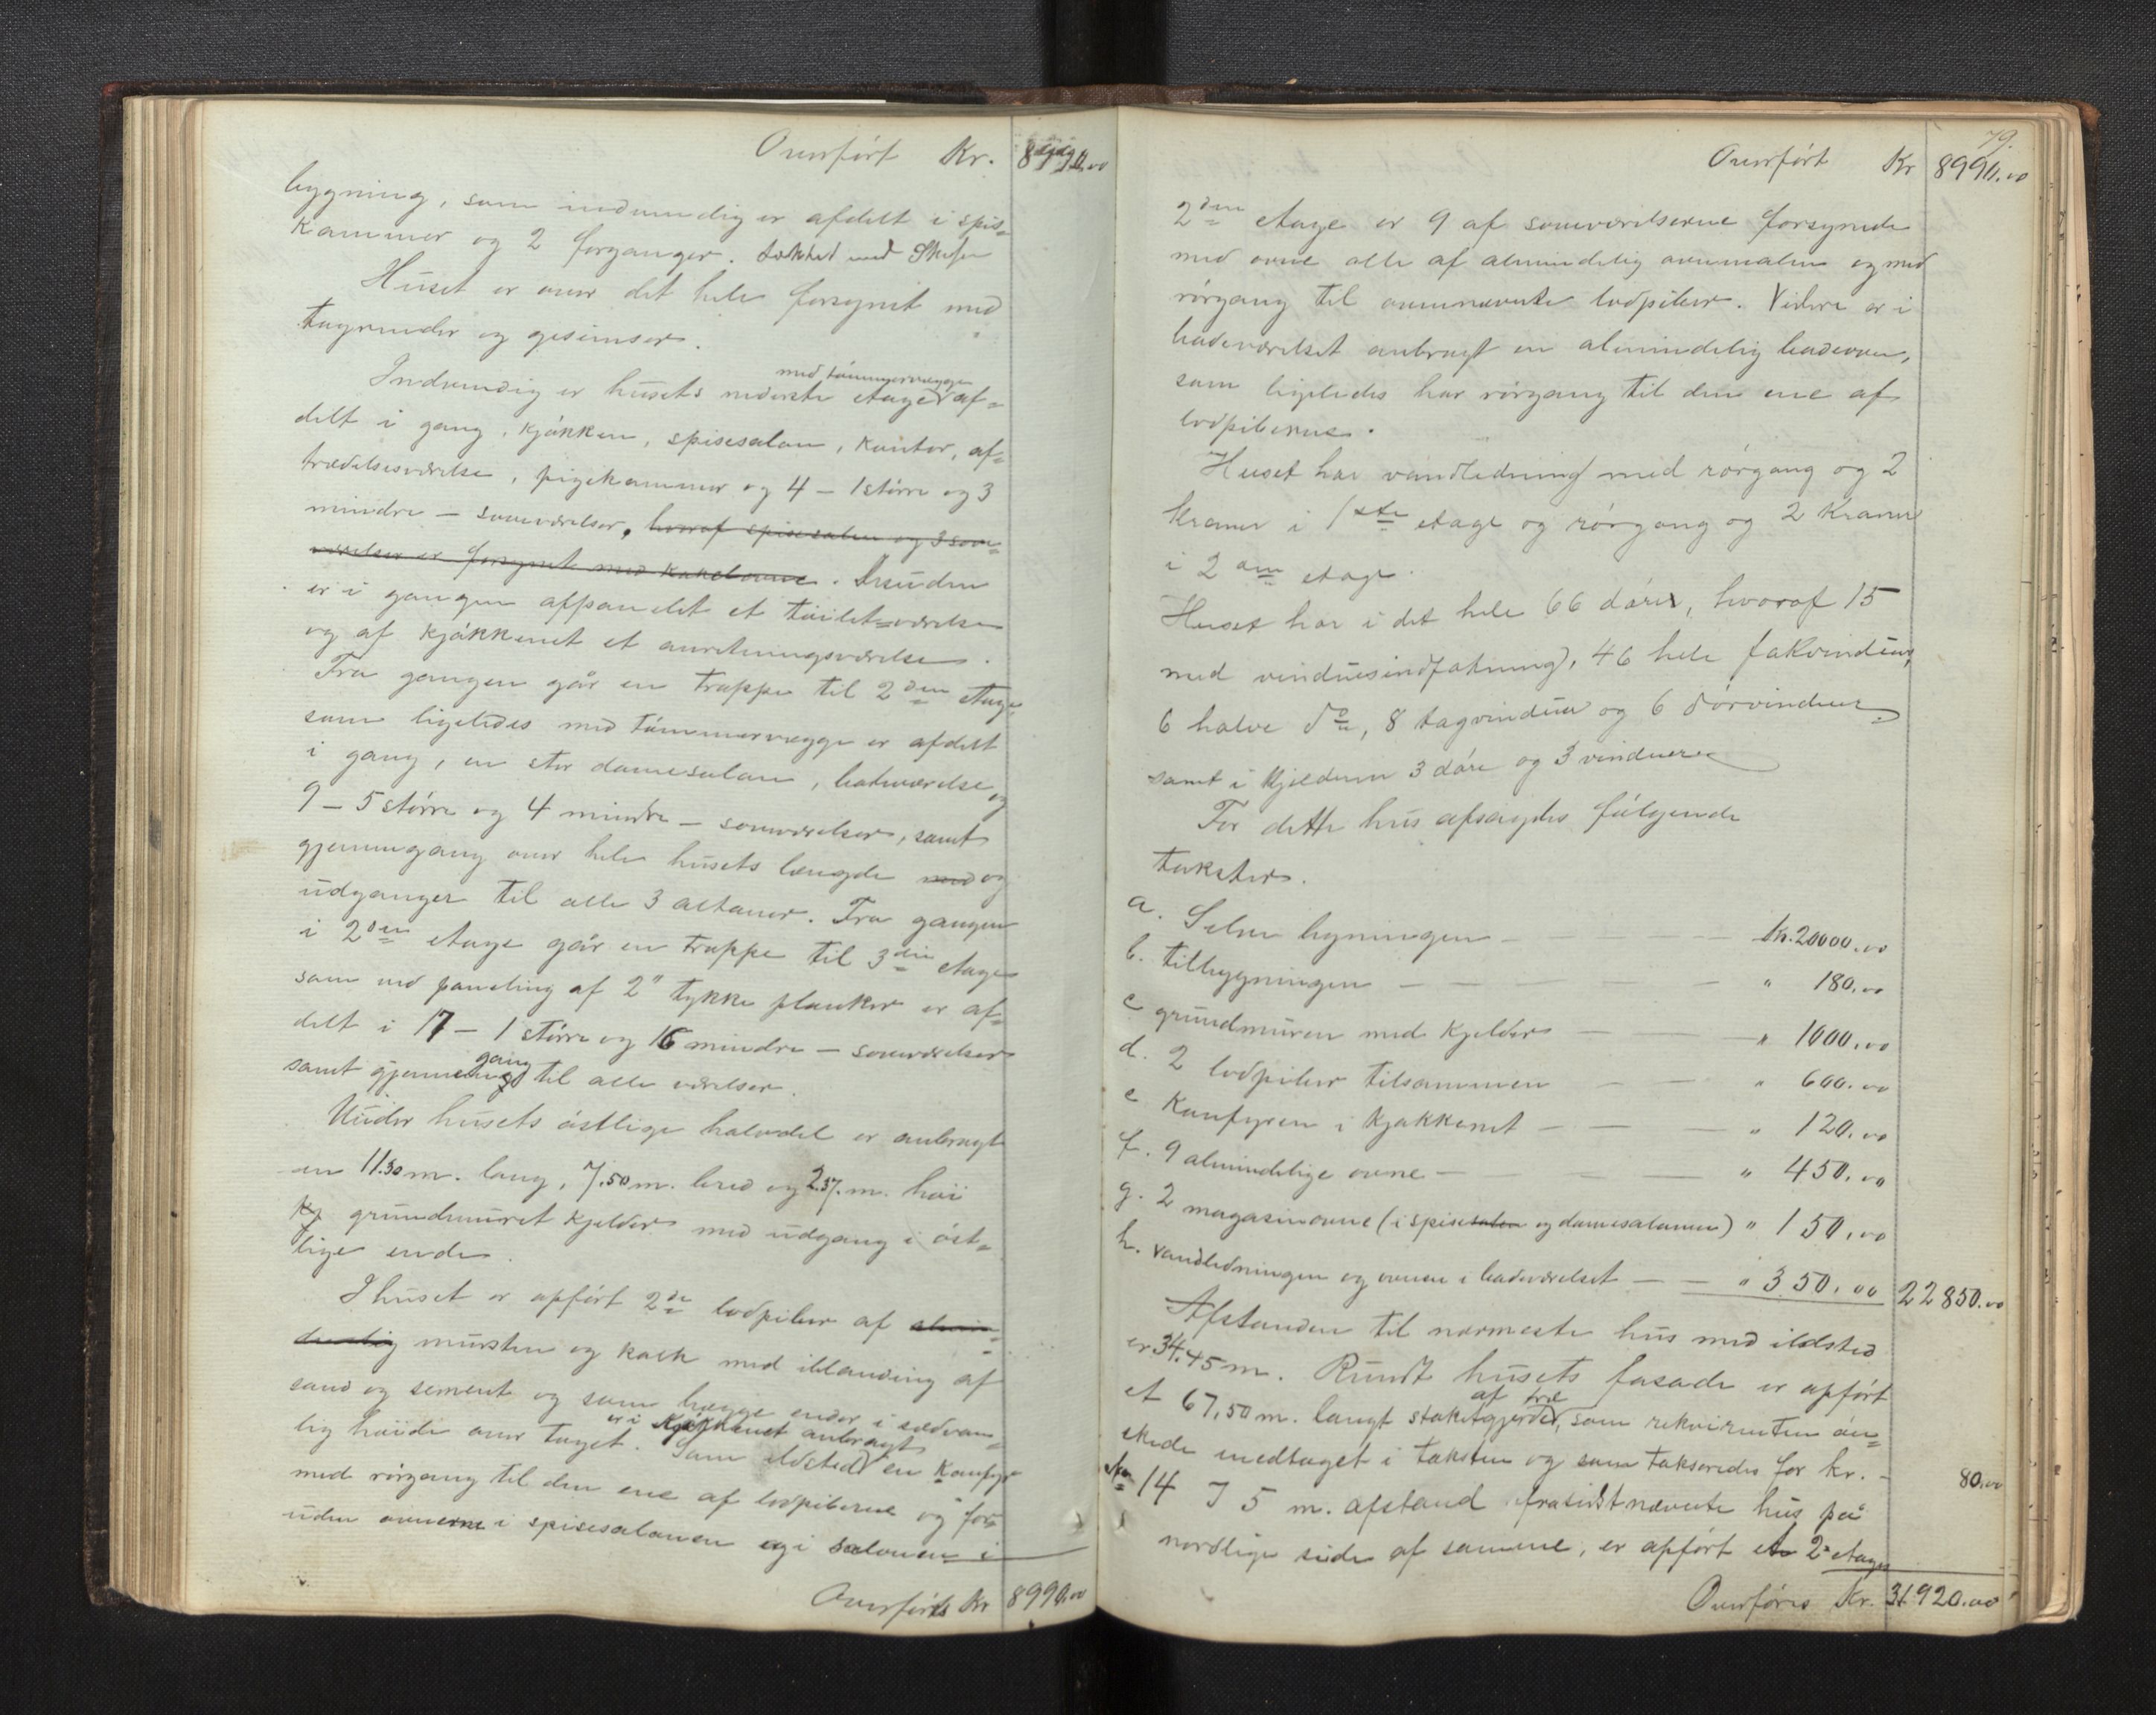 Overført Kr. 8990.00
bygning, som indvendig er afdelt i spis-
kammer og 2 forganger. tækket med Skifer
Huset er over det hele forsynet med
tagrender og gesimser.
med tømmervægge
Indvendig er husets nederste etage af-
delt i gang, kjøkken, spisesalon, kontor, af-
trædelsesværelse, pigekammer og 4 - 1 større og 3
mindre - soveværelser, hvoraf spisesalen og 3 sove-
værelser er forsynet med kakelovne. Desuden
er i gangen afpanelet et toiletværelse
og af kjøkkenet et anretningsværelse.
Fra gangen går en trappe til 2den etage
som ligeledes med tømmervægge er afdelt
i gang, en stor damesalon, badeværelse og
9 - 5 større og 4 mindre - soveværelser, samt
gjennemgang over hele husets længde med og
udganger til alle 3 altaner. Fra gangen
i 2den etage går en trappe til 3die etage
som ved paneling af 2" tykke planker er af-
delt i 17 - 1 større og 16 mindre - soveværelser
samt gjennemgang til alle værelser.
Under husets østlige halvdel er anbragt
en 11.30 m. lang, 7.50 m. bred og 2.37. m. høi
kj grundmuret kjelder med udgang i øst-
lige ende.
I huset er opført 2de lodpiber af almin-
delig mursten og kalk med iblanding af
sand og sement og som begge ender i sædvan-
lig høide over taget. Som ildsted er i kjøkkenet anbragt en komfyr
med rørgang til den ene af lodpiberne og for-
uden ovnerne i spisesalonen og i salonen i
Overføres Kr 8990.00
79.
Overført Kr 8990.00
2den etage er 9 af soveværelserne forsynede
med ovne alle af almindelig ovnmalm og med
rørgang til ovennævnte lodpiber. Videre er i
badeværelset anbragt en almindelig badeovn,
som ligeledes har rørgang til den ene af
lodpiberne.
Huset har vandledning med rørgang og 2
kraner i 1ste etage og rørgang og 2 kraner
i 2den etage.
Huset har i det hele 66 døre, hvoraf 15
med vinduesindfatning, 46 hele fakvinduer,
6 halve do, 8 tagvinduer og 6 dørvinduer
samt i kjelderen 3 døre og 3 vinduer
For dette hus afsagdes følgende
takster.
a. Selve bygningen - Kr. 20000.00
b. tilbygningen - " 180.00
c grundmuren med kjelder - " 1000.00
d. 2 lodpiber tilsammen - " 600.00
e Komfyren i kjøkkenet - " 120.00
f. 9 almindelige ovne - " 450.00
g. 2 magasinovne (i spisesalen og damesalonen) " 150.00
h. vandledningen og ovnen i badeværelset - " 350.00 22850.00
Afstanden til nærmeste hus med ildsted
er 34.45 m. Rundt husets fasade er opført
af træ
et 67,50 m. langt stakitgjerde, som rekvirenten øn-
skede medtaget i taksten og som takseredes for kr. - 80.00
No 14 I 5 m. afstand fra sidstnævnte hus på
nordlige side af samme, er opført et 2 etages
Overføres Kr. 31920.00